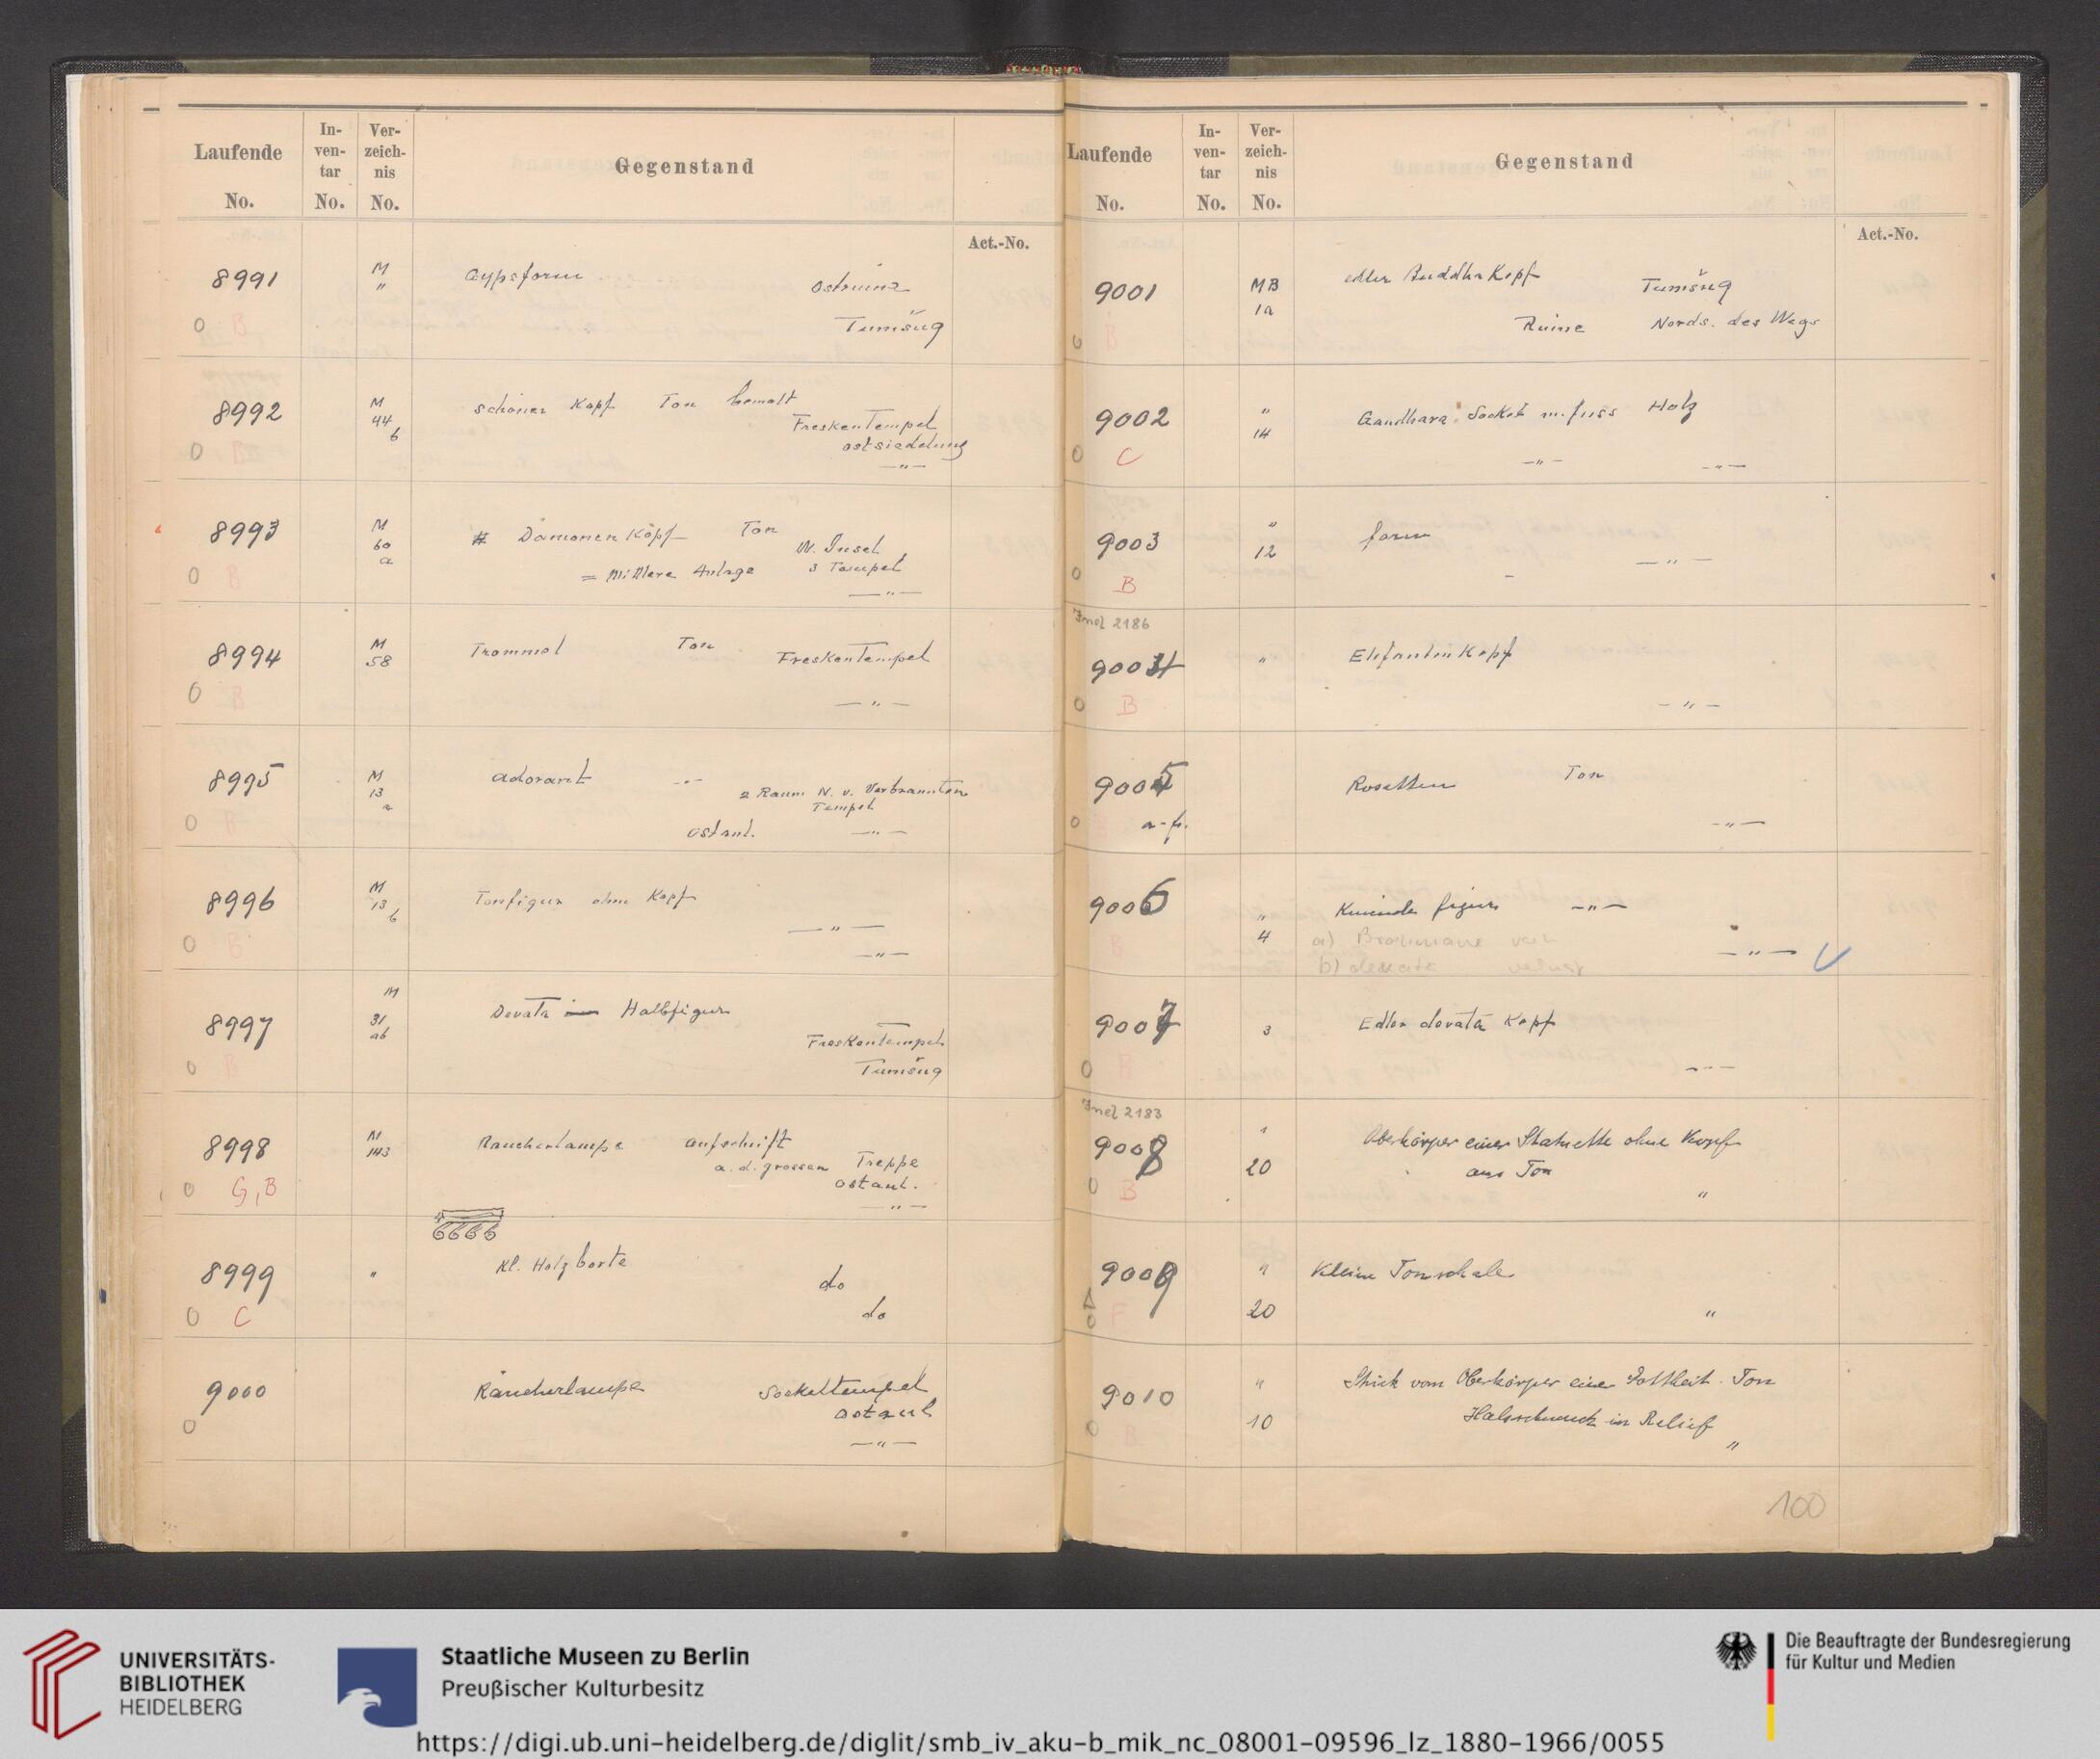 Laufende No.
In-ven-tar No.
Ver-zeich-nis No.
Gegenstand
Act.-No.
8991 M " Gypsform Ostruine
O B Tumšug
8992 M 44 b schöner Kopf Ton bemalt
FreskenTempel
ostsiedelung
O B —"—
8993 M 60 a # Dämonen Kopf Ton
N. Insel
= Mittlere Anlage 3 Tempel
O B —"—
8994 M 58 Trommel Ton FreskenTempel
O B —"—
8995 M 13 a adorant -"-
2 Raum N. v. Verbrannten
Tempel
O B ostanl. —"—
8996 M 13 b Tonfigur ohne Kopf
—"—
O B —"—
8997 M 31 ab Devatā Halbfigur
FreskenTempel
O B Tumšug
8998 M 143 Räucherlampe aufschrift
a. d. grossen Treppe
O G, B ostanl.
—"—
8999 " Kl. Holzborte
do
O C do
9000 Räucherlampe Sockeltempel
ostanl
O —"—
Laufende No.
In-ven-tar No.
Ver-zeich-nis No.
Gegenstand
Act.-No.
9001 MB 1a edler Buddha Kopf Tumšug
O B Ruine Nords. des Wegs
9002 " 14 Gandhara Sockel m. fuss Holz
O C —"— —"—
9003 " 12 form
—"—
O B
9004 " Elefanten Kopf
O B —"—
9005 Rosetten Ton
O a-f. —"—
9006 " 4 Knieende figur —"—
B a) Brahmane
b) —"—
9007 3 Edler devatā Kopf
O B —"—
2183
9008 " 20 Oberkörper einer Statuette ohne Kopf
aus Ton
O B "
9009 " 20 Kleine Tonschale
O F "
9010 " 10 Stück vom Oberkörper einer Gottheit. Ton
Halsschmuck in Relief
O B "
100
UNIVERSITÄTS-
BIBLIOTHEK
HEIDELBERG
Staatliche Museen zu Berlin
Preußischer Kulturbesitz
Die Beauftragte der Bundesregierung
für Kultur und Medien
https://digi.ub.uni-heidelberg.de/diglit/smb_iv_aku-b_mik_nc_08001-09596_lz_1880-1966/0055